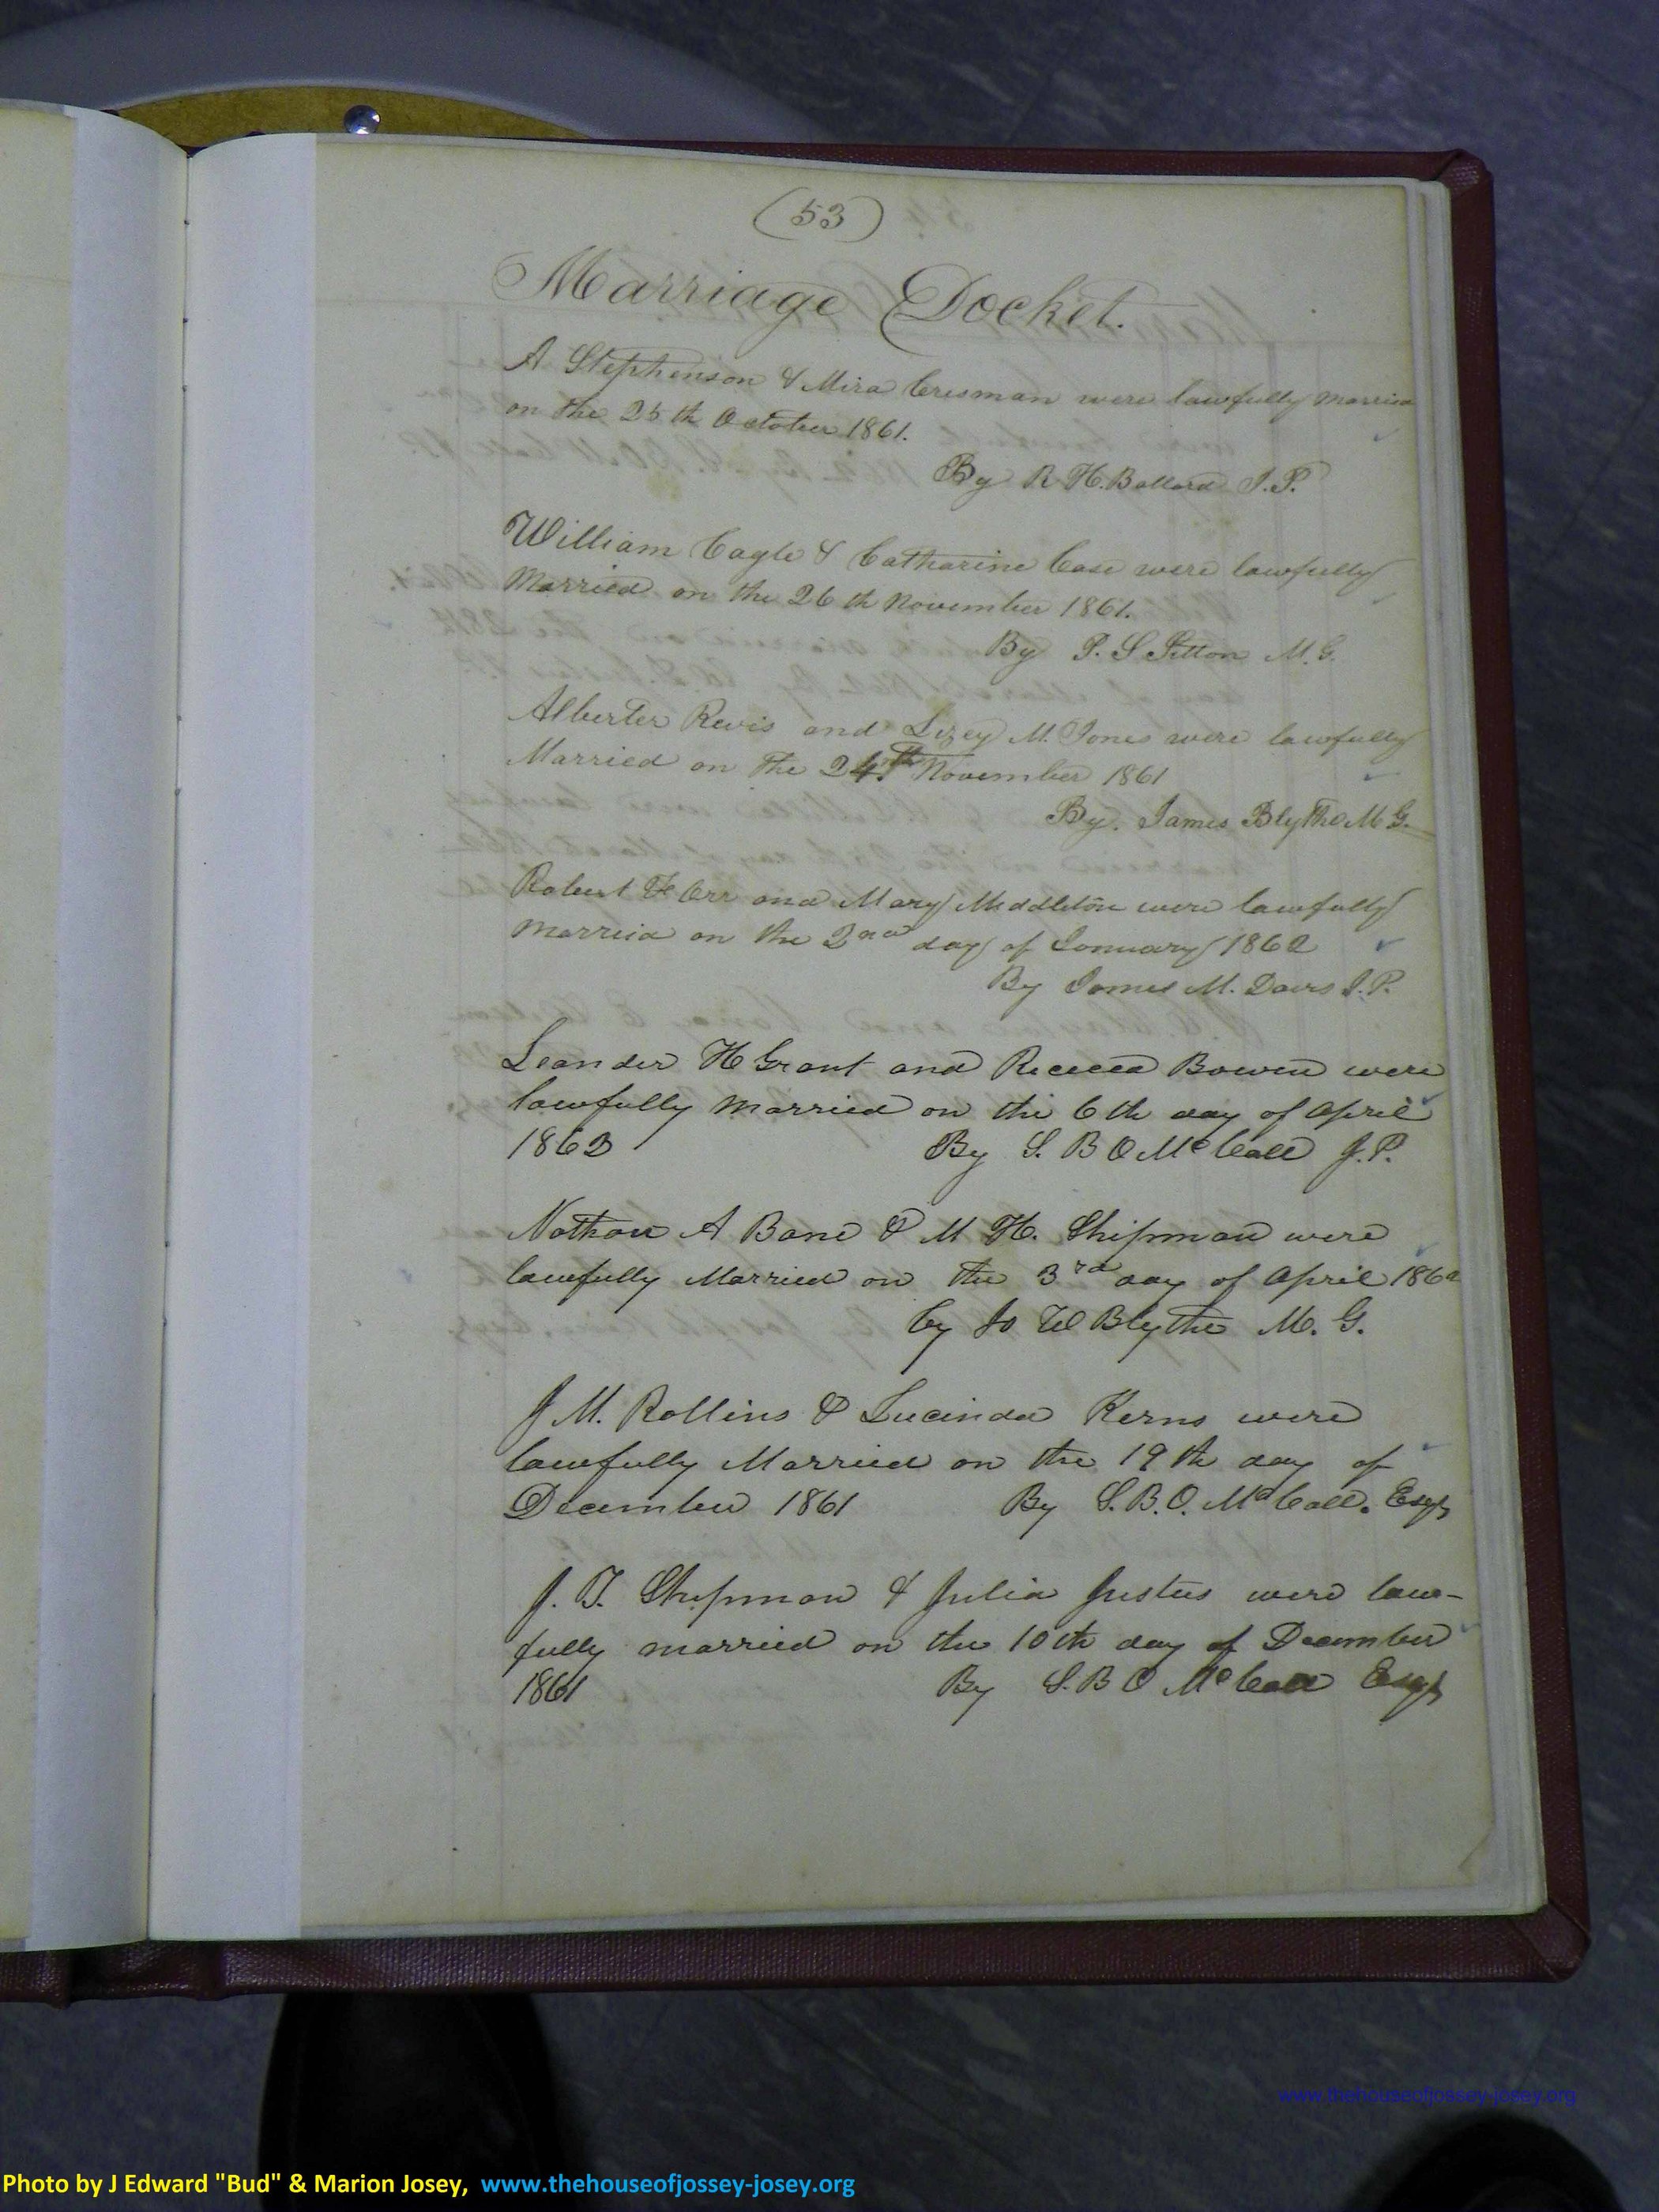 (53)
Marriage Docket.
A Stephenson & Mira Crisman were lawfully married
on the 25th October 1861.
By R H. Ballard J.P.
William Cagle & Catharine Case were lawfully
Married on the 26th November 1861.
By P. S Sitton M.G.
Alberter Revis and Lizey M. Jones were lawfully
Married on the 24th November 1861
By. James Blythe M G.
Robert F Orr and Mary Middleton were lawfully
Married on the 2nd day of January 1862
By James M. Davis J.P.
Leander H Grant and Bowen were
lawfully Married on the 6th day of April
1862 By S. B O McCall J.P.
Nathan A Bane & M H. Shipman were
lawfully Married on the 3rd day of April 1862
by Js W Blythe M. G.
J M. Rollins & Lucinda Kerns were
lawfully Married on the 19th day of
December 1861 By S.B.O. McCall. Esqr
J. T. Shipman & Julia Justus were law-
fully married on the 10th day of December
1861 By S.B O McCall Esqr
www.thehouseofjossey-josey.org
Photo by J Edward "Bud" & Marion Josey, www.thehouseofjossey-josey.org